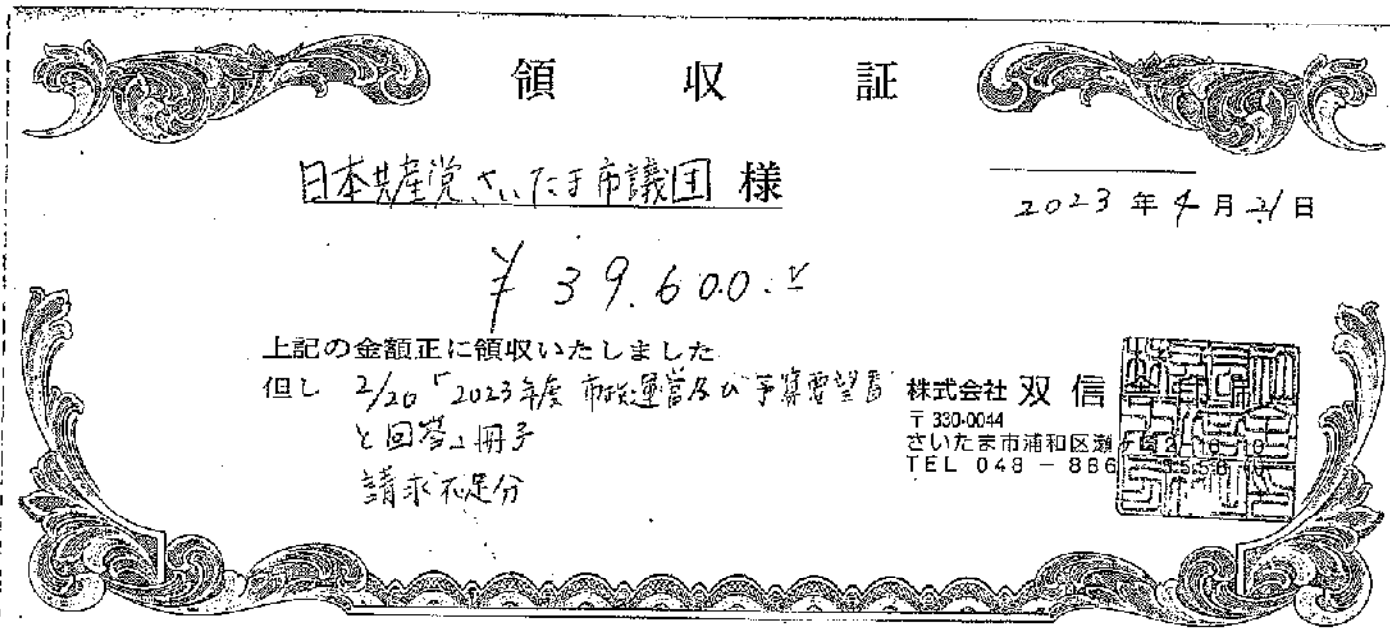 領収証
日本共産党さいたま市議団 様
2023年4月21日
¥39.600.-
上記の金額正に領収いたしました
但し 2/20「2023年度 市政運営及び予算要望書
と回答」冊子
請求不足分
株式会社 双信舎印刷
〒330-0044
さいたま市浦和区瀬ヶ崎2-16-10
TEL 048-886